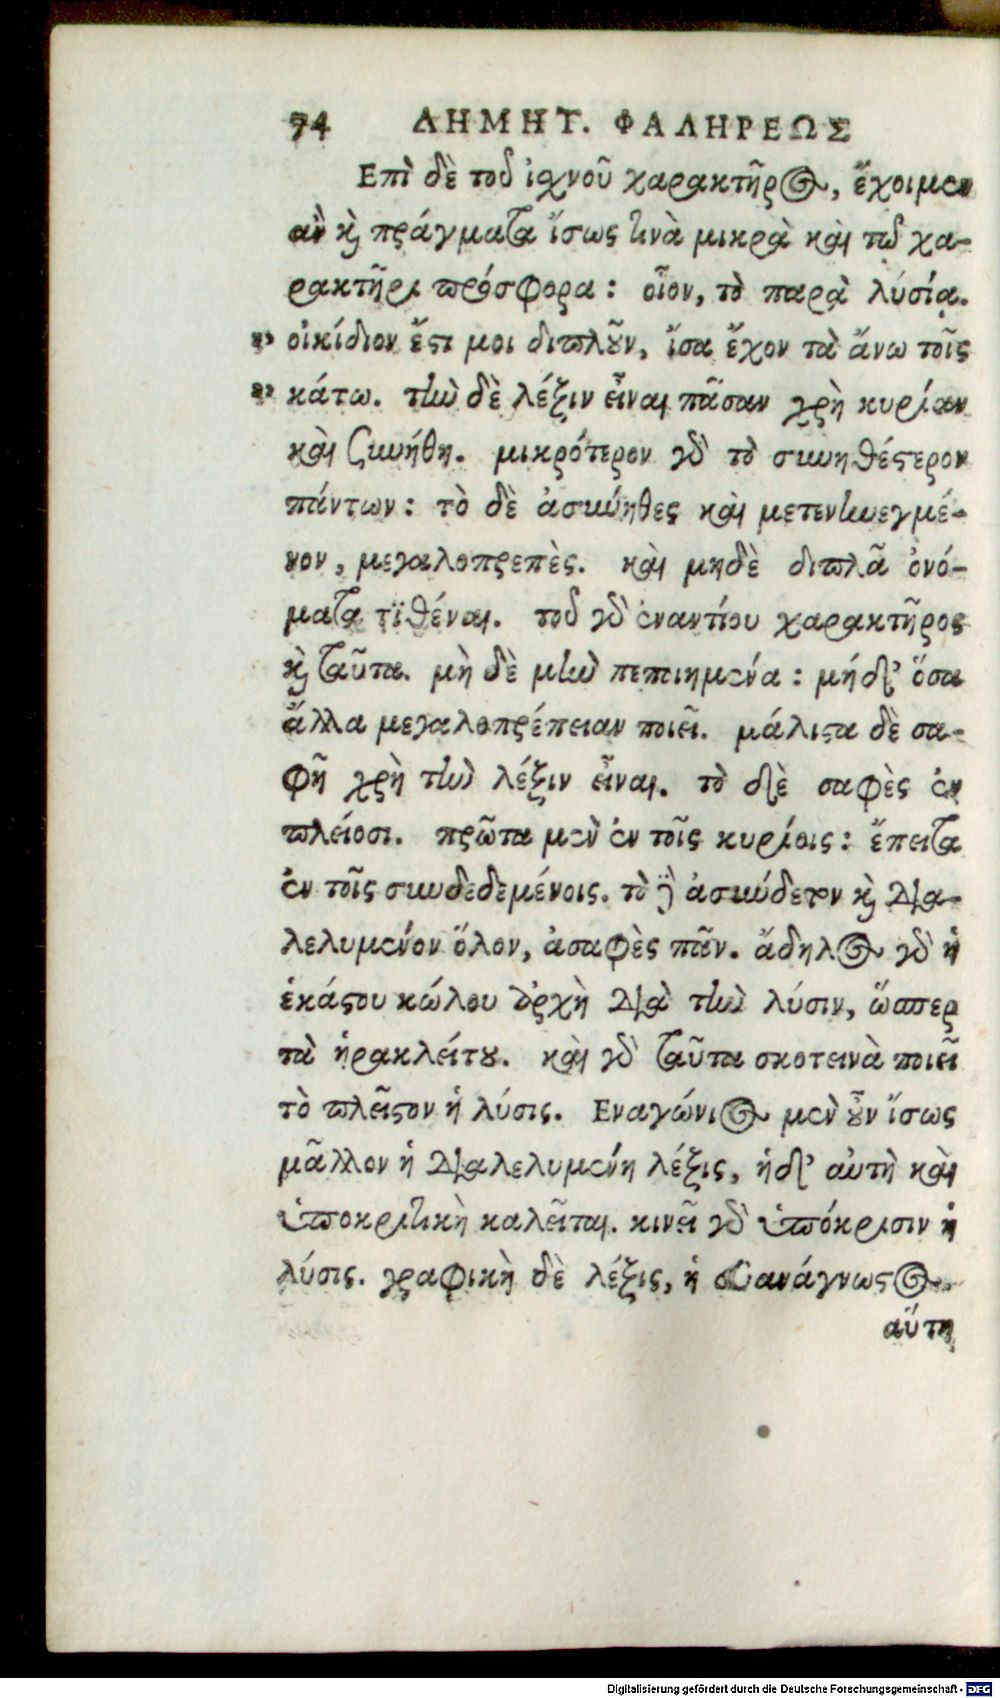 74 ΔΗΜΗΤ. ΦΑΛΗΡΕΩΣ
Επὶ δὲ τοῦ ἰχνοῦ χαρακτῆρος, ἔχοιμεν
ἂν καὶ πράγματα ἴσως τινὰ μικρὰ καὶ τῷ χα-
ρακτῆρι πρόσφορα: οἷον, τὸ παρὰ λυσίᾳ.
οἰκίδιον ἔστι μοι διπλοῦν, ἴσα ἔχον τὰ ἄνω τοῖς
κάτω. τὴν δὲ λέξιν εἶναι πᾶσαν χρὴ κυρίαν
καὶ συνήθη. μικρότερον γὰρ τὸ συνηθέστερον
πάντων: τὸ δὲ ἀσύνηθες καὶ μετενηνεγμέ-
νον, μεγαλοπρεπὲς. καὶ μηδὲ διπλᾶ ὀνό-
ματα τϊθέναι. τοῦ γὰρ ἐναντίου χαρακτῆρος
καὶ ταῦτα. μὴ δὲ μὴν πεποιημένα: μήδ' ὅσα
ἄλλα μεγαλοπρέπειαν ποιεῖ. μάλιστα δὲ σα-
φῆ χρὴ τὴν λέξιν εἶναι. τὸ δὲ σαφὲς ἐν
πλείοσι. πρῶτα μὲν ἐν τοῖς κυρίοις: ἔπειτα
ἐν τοῖς συνδεδεμένοις. τὸ δὲ ἀσύνδετον καὶ δια-
λελυμένον ὅλον, ἀσαφὲς πᾶν. ἄδηλος γὰρ ἡ
ἑκάστου κώλου ἀρχὴ διὰ τὴν λύσιν, ὥσπερ
τὰ ἡρακλείτου. καὶ γὰρ ταῦτα σκοτεινὰ ποιεῖ
τὸ πλεῖστον ἡ λύσις. Εναγώνιος μὲν οὖν ἴσως
μᾶλλον ἡ διαλελυμένη λέξις, ἡδ' αὐτὴ καὶ
ὑποκριτικὴ καλεῖται. κινεῖ γὰρ ὑπόκρισιν ἡ
λύσις. γραφικὴ δὲ λέξις, ἡ εὐανάγνωστος.
αὕτη
Digitalisierung gefördert durch die Deutsche Forschungsgemeinschaft - DFG